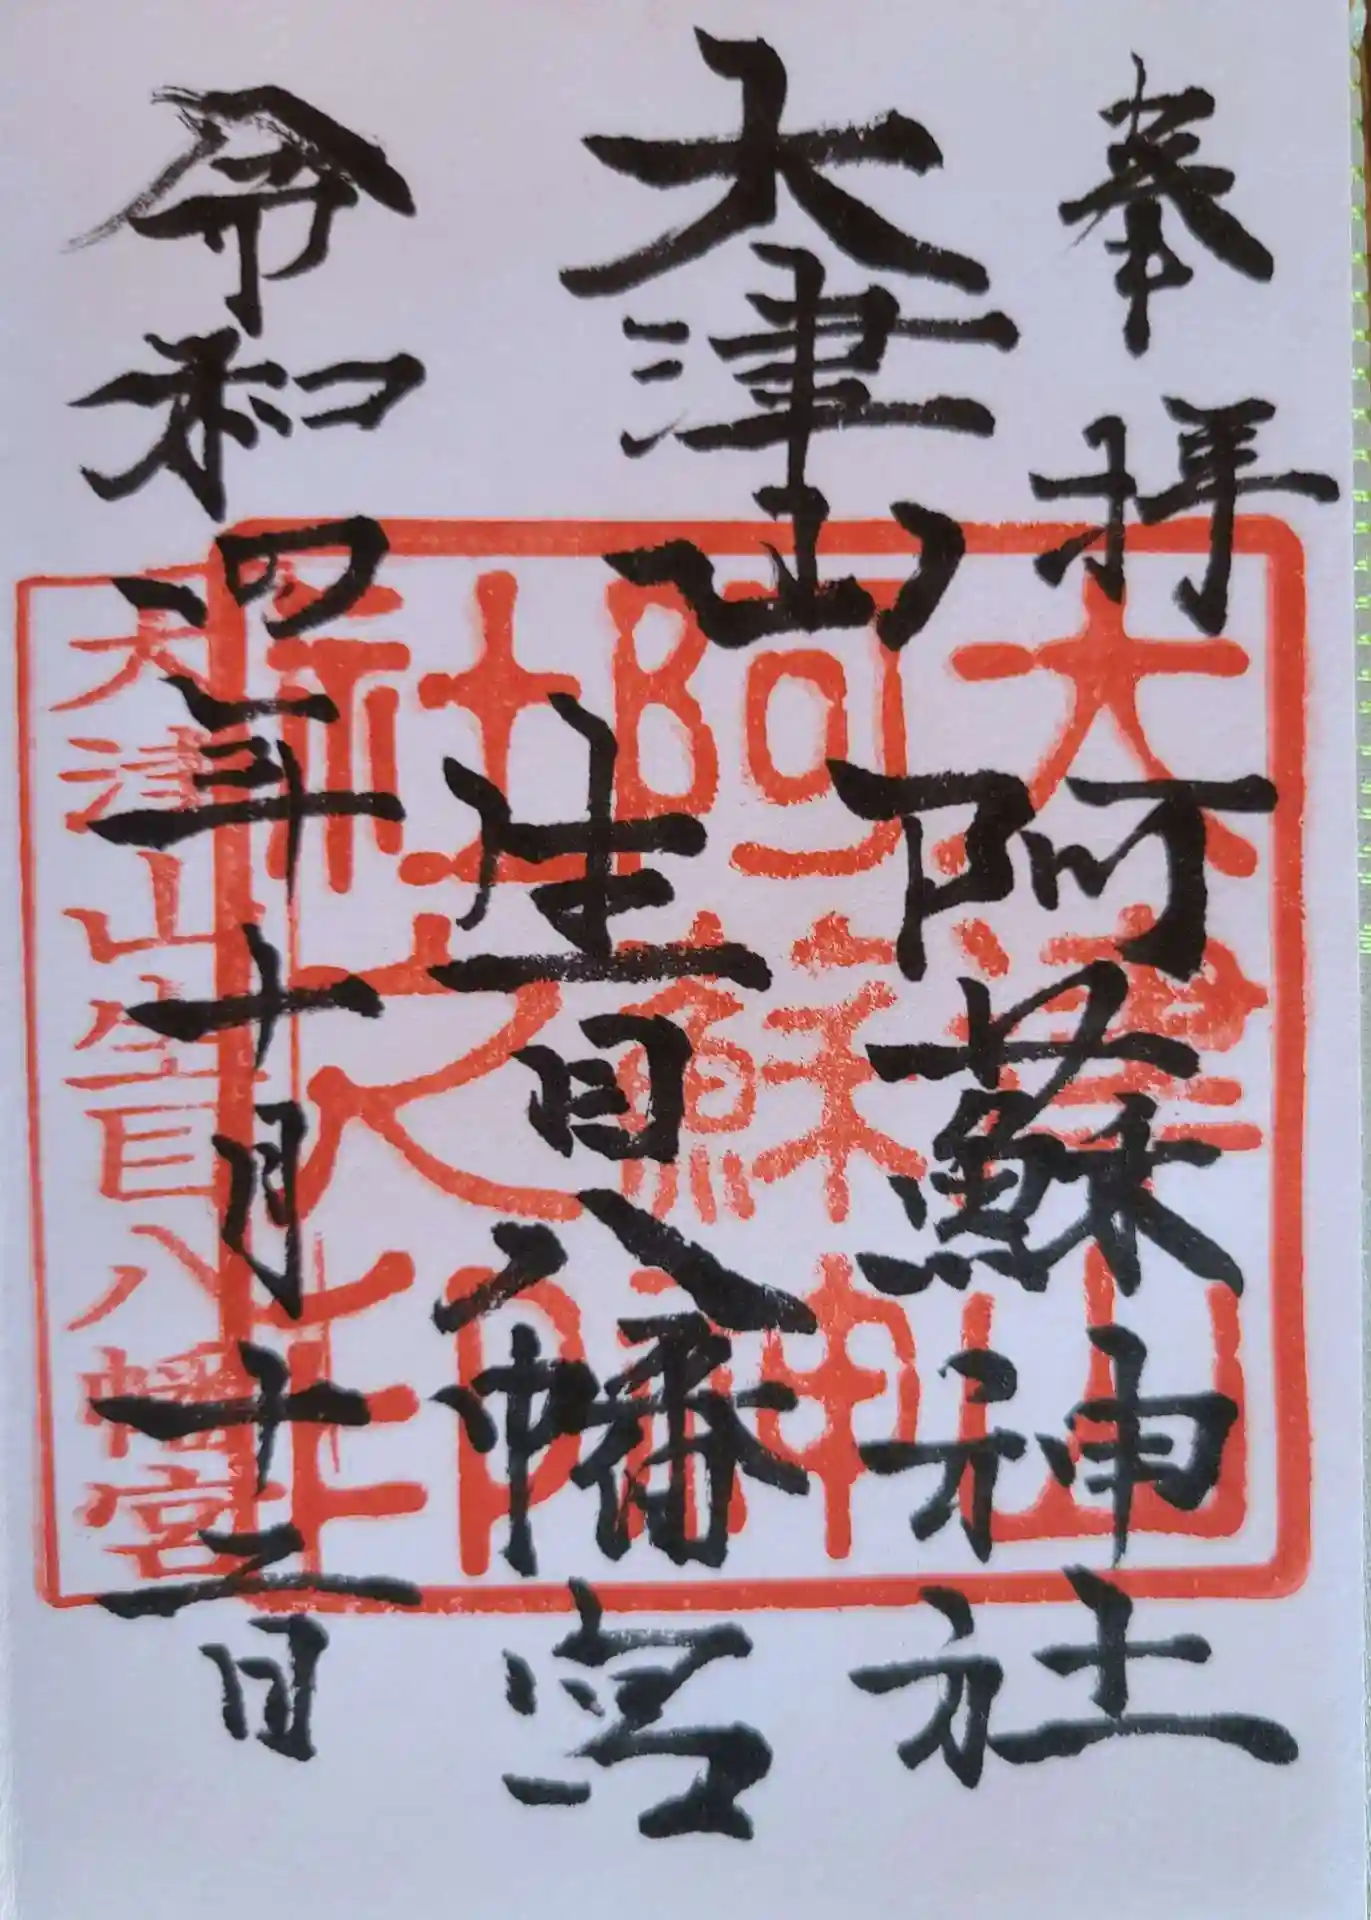 奉拝
大津山
阿蘇神社
生目八幡宮
令和四年十月十三日
大津山
阿蘇神
社之印
大津山生目八幡宮